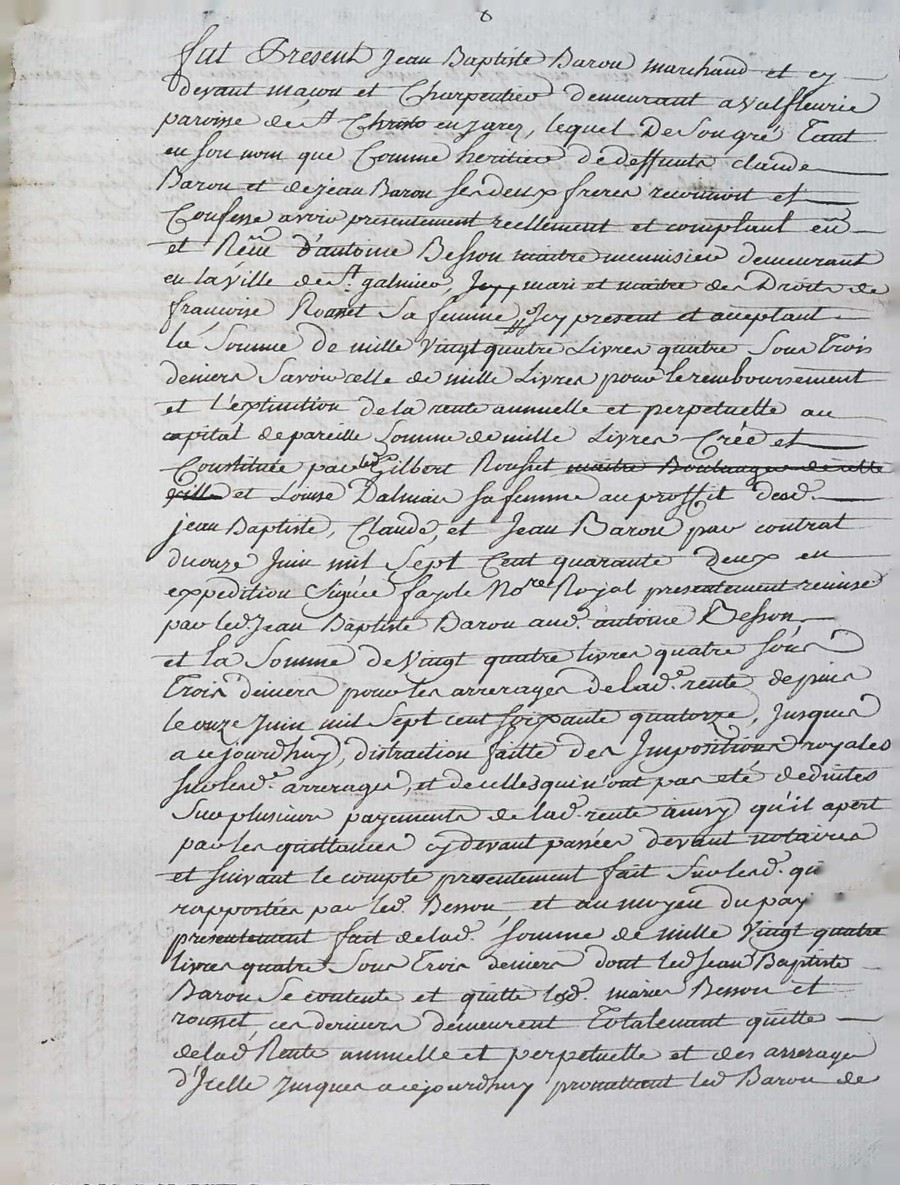 fut Present Jean Baptiste Barou marchand et cy
devant maçon et Charpentier demeurant a Valfleurie
paroisse de St Christo en jarez, lequel De Son gré Tant
en son nom que Comme heritier de deffunts claude
Barou et de jean Barou ses deux freres reconnoit et
Confesse avoir presentement reellement et comptant eû
et Reçû d'antoine Besson maitre menuisier demeurant
en la ville de St galmier, mari et maitre des Droits de
francoise Rousset Sa femme Icy present et acceptant
la Somme de mille Vingt quatre Livres quatre Sous Trois
deniers Savoir celle de mille Livres pour le remboursement
et l'extinction de la rente annuelle et perpetuelle au
capital de pareille Somme de mille Livres Créé et
Constituée par led Gilbert Rousset maitre Boulanger de cette
ville et Louise Dalmais sa femme au proffit desd.
jean Baptiste, Claude, et Jean Barou par contrat
du onze Juin mil Sept Cent quarante deux en
expedition Signée fayole No.re Royal presentement remise
par led. Jean Baptiste Barou aud. antoine Besson
et la Somme de Vingt quatre livres quatre sous
Trois deniers pour les arrerages de lad.e rente depuis
le onze Juin mil Sept cent soixante quatorze, Jusques
a cejourdhuy, distraction faitte des Impositions royales
sur lesd.s arrerages, et de celles qui n'ont pas eté deduites
Sur plusieurs payements de lad. rente ainsy qu'il apert
par les quittances cy devant passées devant notaires
et suivant le compte presentement fait Sur lesd. qu
rapportées par led. Besson et au moyen du pay
presentement fait de lad. somme de mille Vingt quatre
livres quatre Sous Trois deniers dont led Jean Baptiste
Barou Se contente et quitte lesd. mariés Besson et
rousset, ces derniers demeurent Totalement quitte
de lad Rente annuelle et perpetuelle et des arrerages
d'Icelle Jusques a cejourdhuy promettant led Barou de